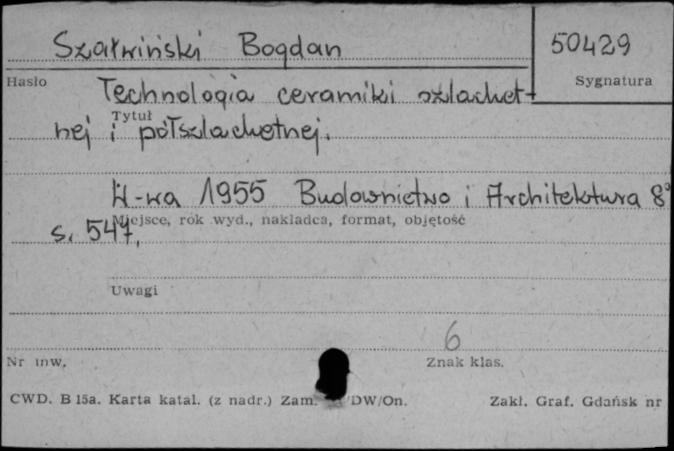 Szałwiński Bogdan 50429
Hasło Sygnatura
Technologia ceramiki szlachet-
Tytuł
nej i półszlachetnej.
W-wa 1955 Budownictwo i Architektura 8°
Miejsce, rok wyd., nakładca, format, objętość
s. 547,
Uwagi
6
Nr inw. Znak klas.
CWD. B 15a. Karta katal. (z nadr.) Zam. DW/On. Zakł. Graf. Gdańsk nr